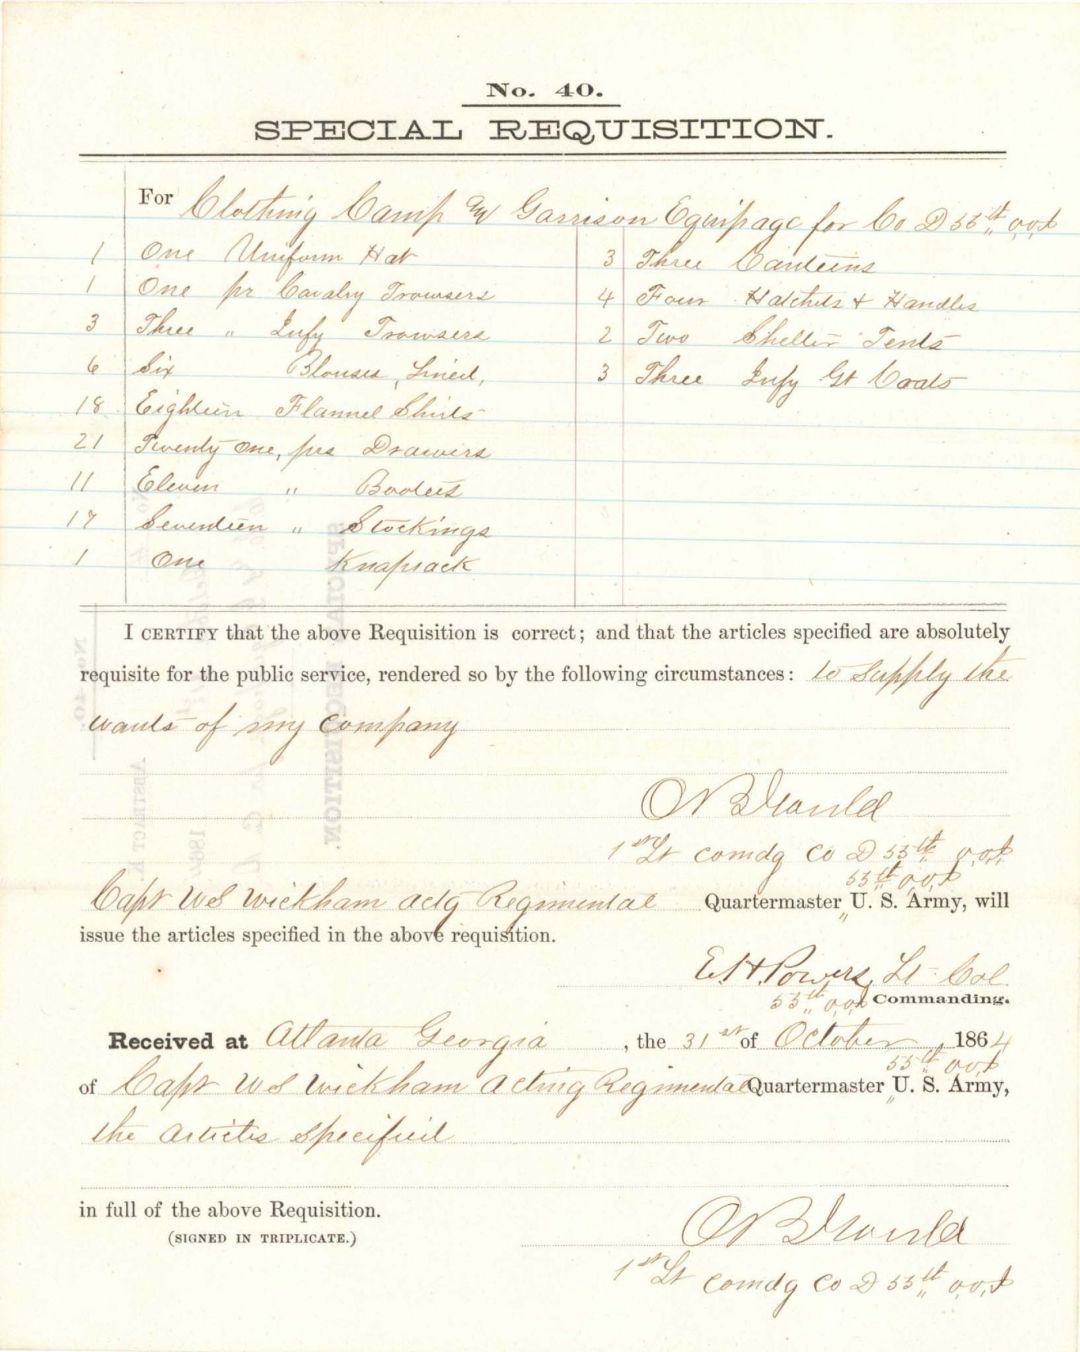 No. 40.
SPECIAL REQUISITION.
For Clothing Camp & Garrison Equipage for Co D 55th O.V.I
1 One Uniform Hat
1 One pr Cavalry Trowsers
3 Three " Infy Trowsers
6 Six Blouses, Lined,
18 Eighteen Flannel Shirts
21 Twenty One, prs Drawers
11 Eleven " Bootees
17 Seventeen " Stockings
1 One Knapsack
3 Three Canteens
4 Four Hatchets & Handles
2 Two Shelter Tents
3 Three Infy Gt Coats
I CERTIFY that the above Requisition is correct; and that the articles specified are absolutely
requisite for the public service, rendered so by the following circumstances: to supply the
wants of my company
1st Lt comdg Co D 55th O.V.I
55th O.V.I
Capt WS Wickham actg Regimental Quartermaster U. S. Army, will
issue the articles specified in the above requisition.
E.H. Powers, Lt Col.
55th O.V.I Commanding.
Received at Atlanta Georgia, the 31st of October, 1864
55th O.V.I
of Capt WS Wickham Acting Regimental Quartermaster U. S. Army,
the articles specified
in full of the above Requisition.
(SIGNED IN TRIPLICATE.)
1st Lt comdg Co D 55th O.V.I